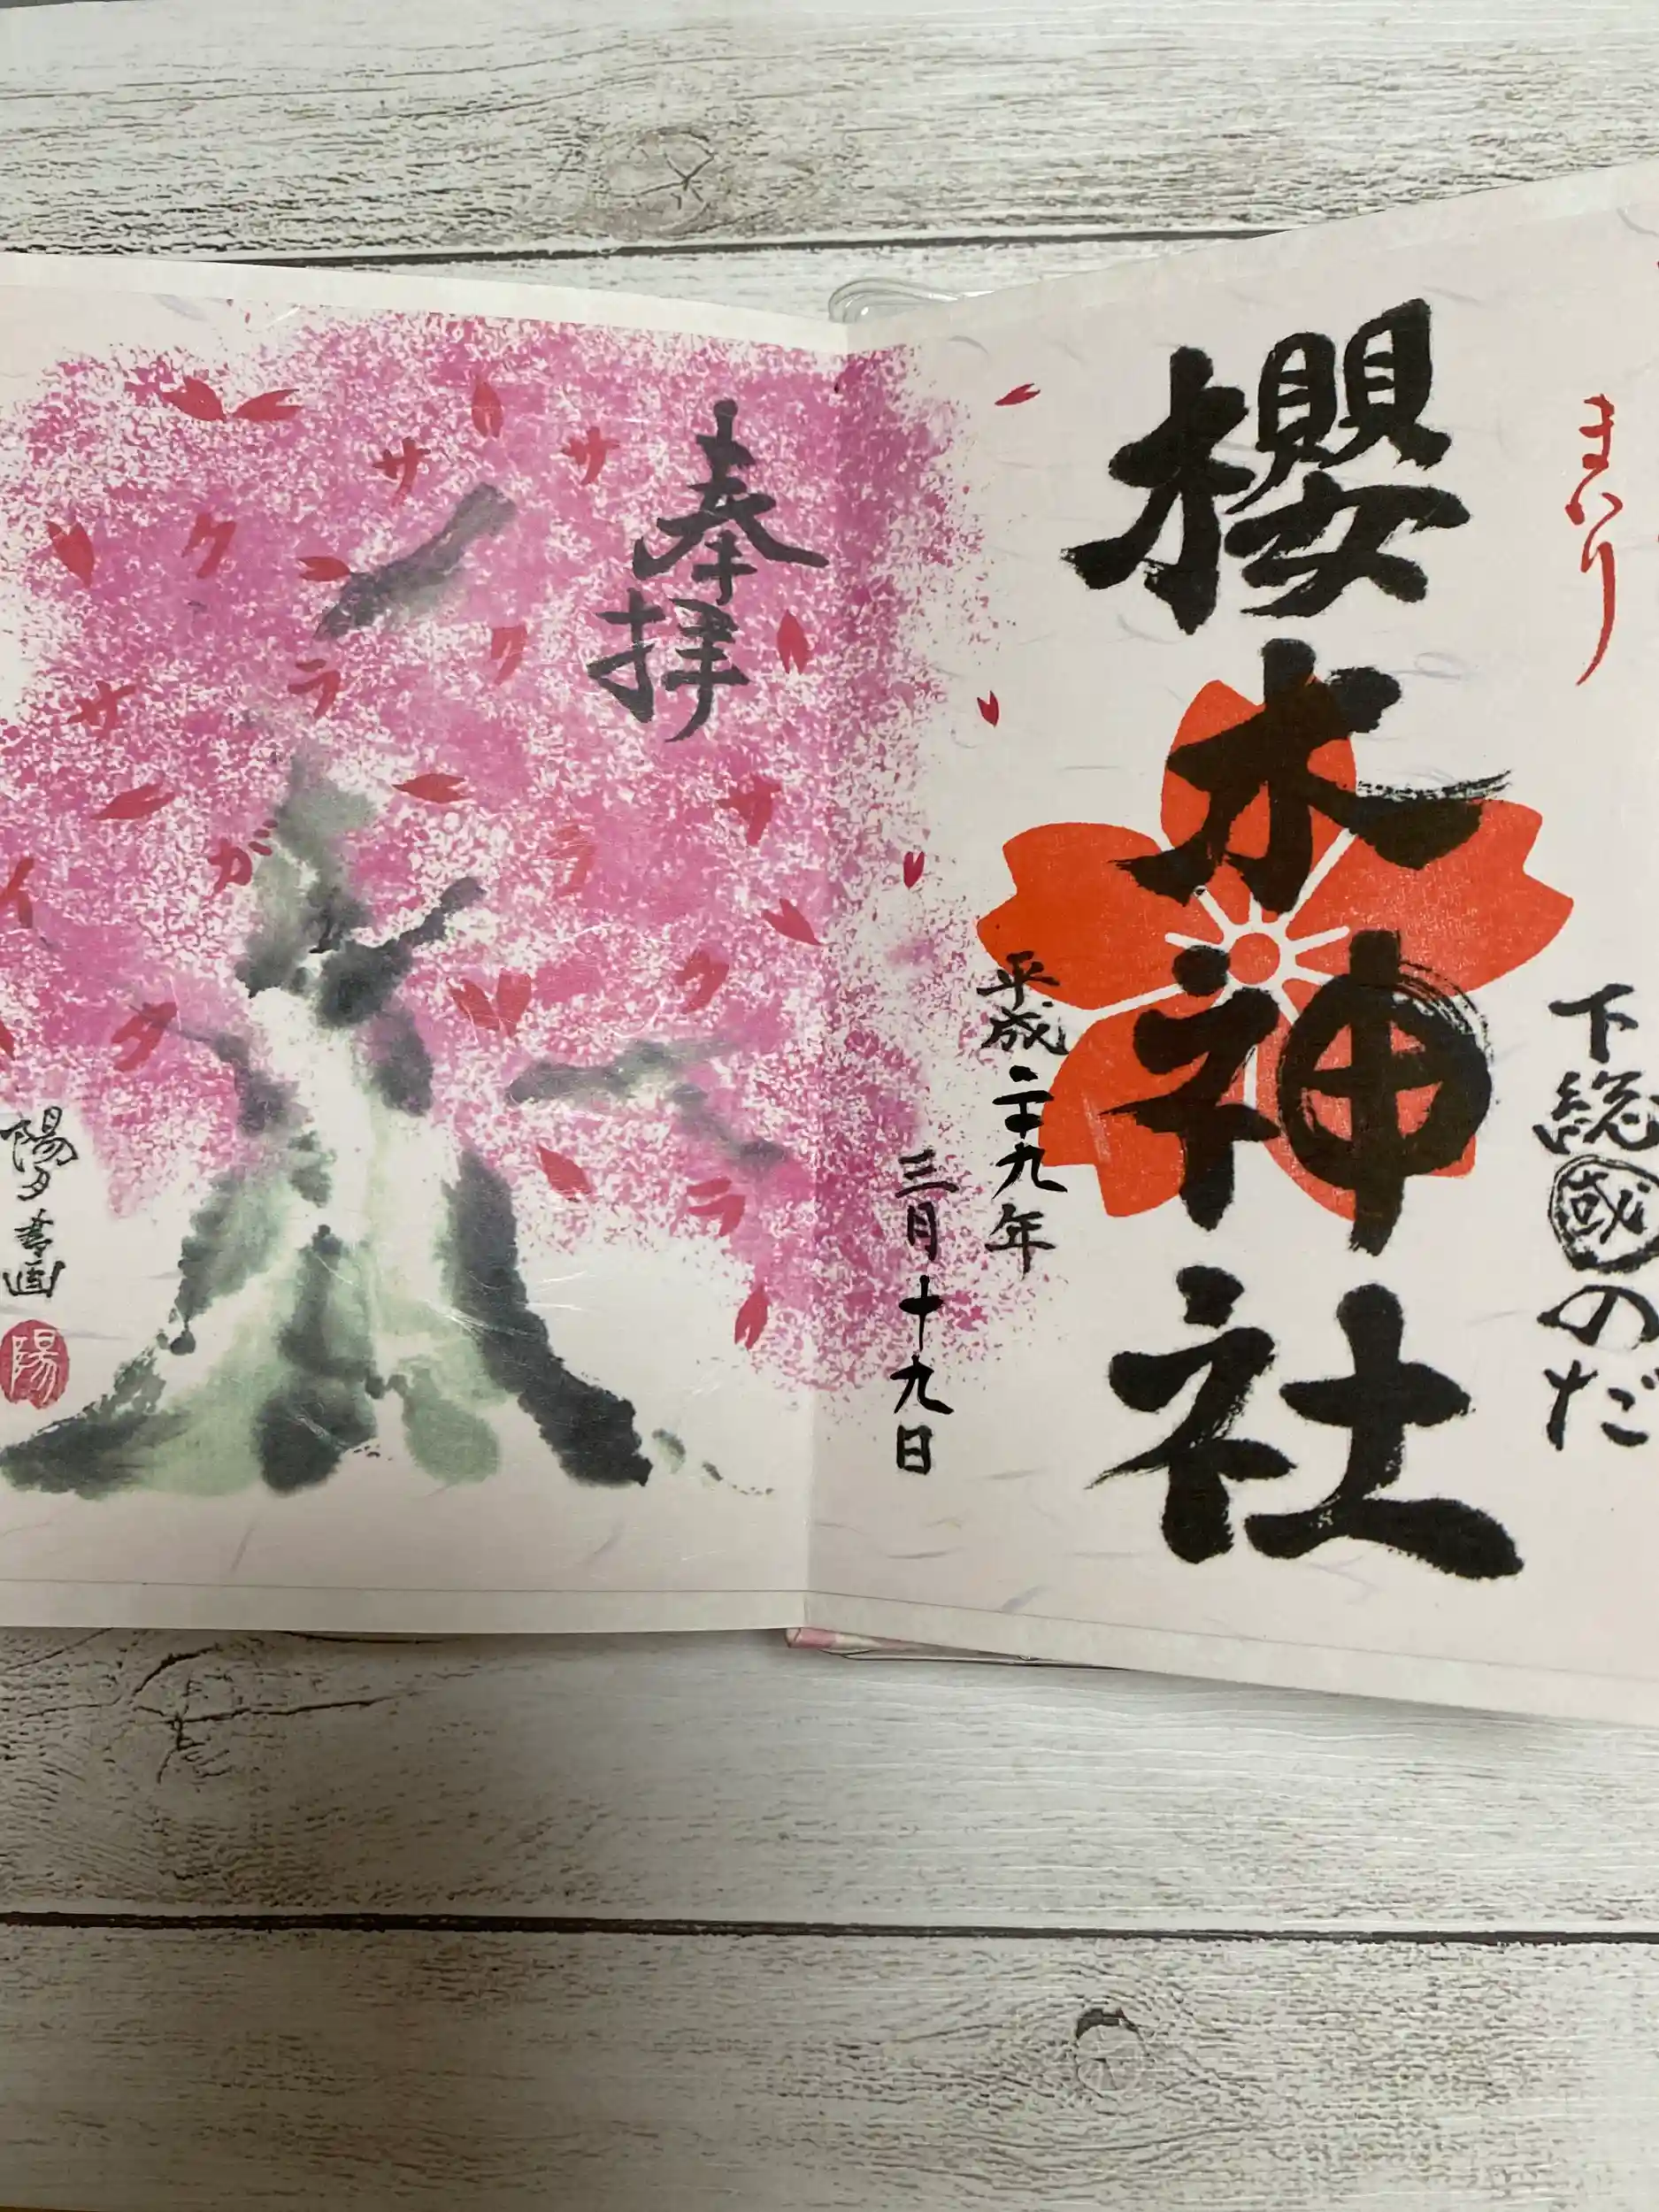 まいり
下総國のだ
櫻木神社
平成二十九年
三月十九日
奉拝
サクラ
サクラ
サクラ
サイタ
ガ
陽夕書画
陽